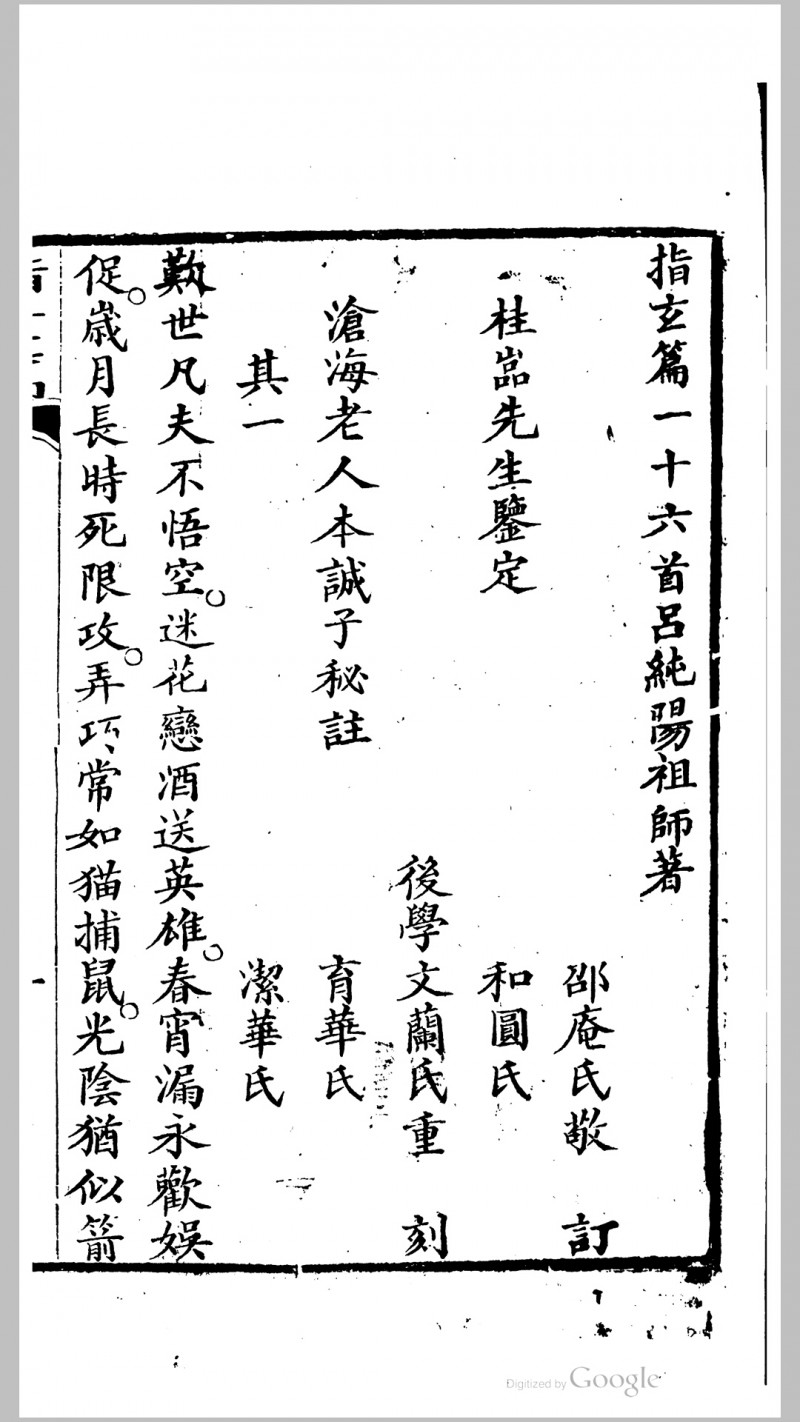 指玄篇一十六首呂純陽祖師著
邵庵氏敬訂
桂嵓先生鑒定
和圓氏
後學文蘭氏重刻
滄海老人本誠子秘註
育華氏
其一
潔華氏
歎世凡夫不悟空。迷花戀酒送英雄。春宵漏永歡娛
促。歲月長時死限攻。弄巧常如猫捕鼠。光陰猶似箭
Digitized by Google